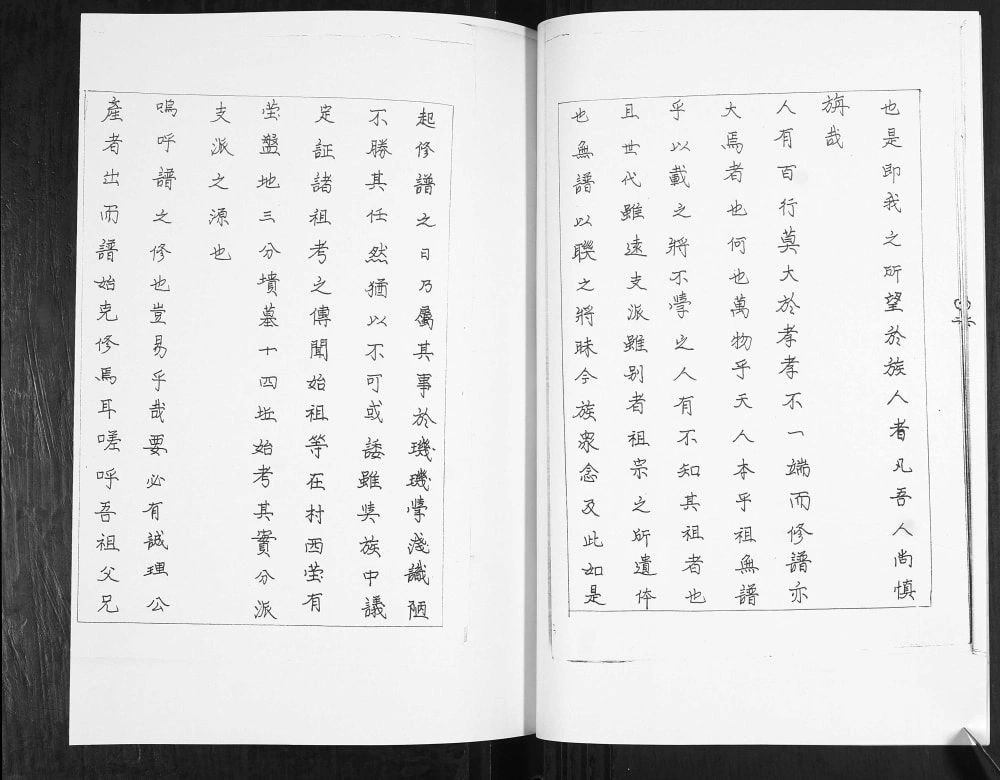 也是即我之所望於族人者凡吾人尚慎
旃哉
人有百行莫大於孝孝不一端而修譜亦
大焉者也何也萬物乎天人本乎祖無譜
乎以載之將不學之人有不知其祖者也
且世代雖遠支派雖别者祖宗之所遺体
也無譜以聯之將昧今族衆念及此如是
起修譜之日乃屬其事於璣璣學淺識陋
不勝其任然猶以不可或諉雖英族中議
定証諸祖考之傳聞始祖等在村西塋有
塋盤地三分墳墓十四坵始考其實分派
支派之源也
嗚呼譜之修也豈易乎哉要必有誠理公
產者出而譜始克修焉耳嗟呼吾祖父兄